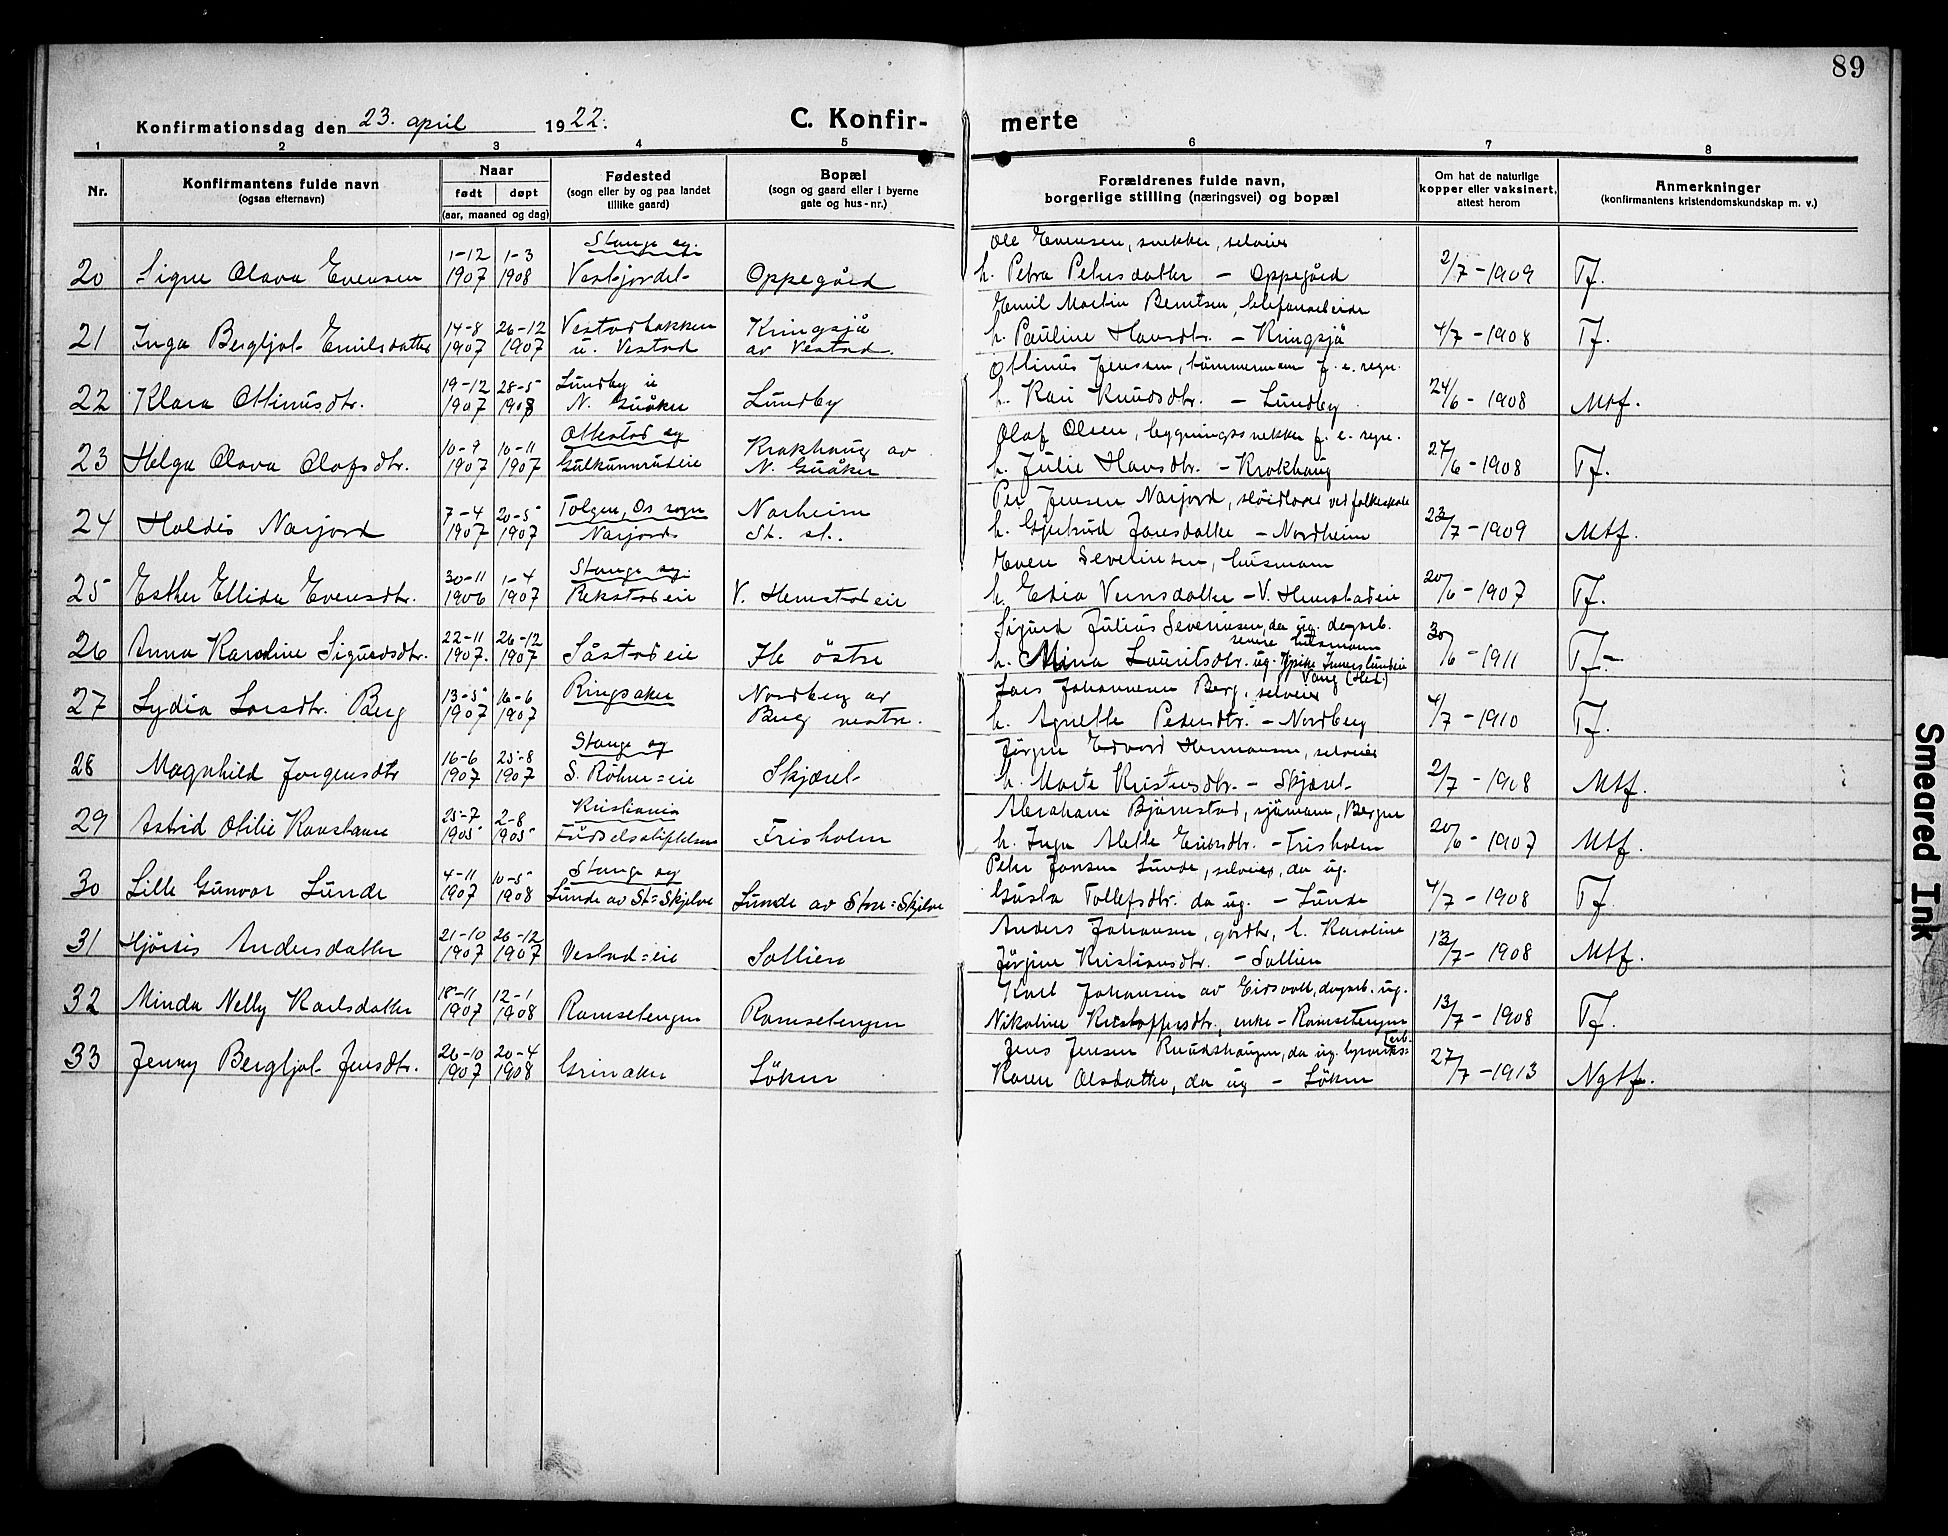 89
Konfirmationsdag den 23. april 1922.
C. Konfirmerte
1 2 3 4 5 6 7 8
Nr.
Konfirmantens fulde navn
(ogsaa efternavn)
Naar
født døpt
(aar, maaned og dag)
Fødested
(sogn eller by og paa landet
tillike gaard)
Bopæl
(sogn og gaard eller i byerne
gate og hus-nr.)
Forældrenes fulde navn,
borgerlige stilling (næringsvei) og bopæl
Om hat de naturlige
kopper eller vaksinert,
attest herom
Anmerkninger
(konfirmantens kristendomskundskap m. v.)
1-12 1-3 Stange og Ole Evensen, snekker, selveier
20 Signe Olava Evensen 1907 1908 Vestjordet Oppegård h. Petra Petersdatter - Oppegård 2/7-1909 Tf.
14-8 26-12 Vestadbakken Kringsjå Emil Martin Berntsen, telefonarbeider
21 Inga Bergljot Emilsdatter 1907 1907 u. Vestad av Vestad. h. Pauline Hansdtr. - Kringsjå 4/7-1908 Tf.
19-12 28-5 Lundby u Ottinus Jensen, tømmermann f. e. regn.
22 Klara Ottinusdtr. 1907 1908 N. Guåker Lundby h. Kari Knudsdtr. - Lundby 24/6-1908 Mtf.
10-9 10-11 Ottestad og Krokhaug av Olaf Olsen, bygningssnekker f. e. regn.
23 Helga Olava Olafsdtr. 1907 1907 Gulkunnrudeie N. Guåker h. Julie Hansdtr. - Krokhaug 27/6-1908 Tf.
7-4 20-5 Tolgen, Os sogn Norheim Per Jensen Narjord, sløidlærer ved folkeskole
24 Haldis Narjord 1907 1907 Narjord St. st. h. Gjertrud Jonsdatter - Nordheim 23/7-1909 Mtf.
30-11 1-4 Stange og Even Severinsen, husmann
25 Esther Ellida Evensdtr. 1906 1907 Rekstadeie V. Hemstadeie h. Edia Vernsdatter - V. Hemstadeie 20/6-1907 Tf.
22-11 26-12 Sigurd Julius Severinsen, da ug. dagarb.
senere husmann
26 Anna Karoline Sigurdsdtr. 1907. 1907 Såstadeie Ile østre h. Mina Lauritsdtr. ug. pike Imerslundeie 30/6-1911 Tf-
Vang (Hed.)
13-5 16-6 Ringsaker Nordberg av Lars Johannesen Berg, selveier
27 Lydia Larsdtr. Berg 1907 1907 Berg vestre. h. Agnette Pedersdtr. - Nordberg 4/7-1910 Tf.
16-6 25-8 Stange og Jørgen Edvard Hermansen, selveier
28 Magnhild Jørgensdtr 1907 1907 S. Røhne=eie Skjæret h. Marte Kristensdtr. - Skjæret 2/7-1908 Mtf.
25-7 2-8 Kristiania Abraham Bjørnstad, sjømann, Bergen
29 Astrid Otilie 1905 1905 Fødselsstiftelsen Frisholm h. Inga Alette Eriksdtr. - Frisholm 20/6-1907 Mtf.
4-11 10-5 Stange og Peter Jonsen Lunde, selveier, da ug.
30 Lille Gunvor Lunde 1907 1908 Lunde av St=Skjelve Lunde av Store=Skjelve Gusta Tollefsdtr. da ug. - Lunde 4/7-1908 Tf.
21-10 26-12 Anders Johansen, gårdbr, h. Karoline
31 Hjørdis Andersdatter 1907 1907 Vestad=eie Sollien Jørgine Kristiansdtr. - Sollien 13/7-1908 Mtf.
18-11 12-1 Karl Johansen av Eidsvoll, dagarb. ug.
32 Minda Nelly Karlsdatter 1907 1908 Ramsetengen Ramsetengen Nikoline Kristoffersdtr., enke - Ramsetengen 13/7-1908 Tf.
20-10 20-4 Jens Jensen Knudshaugen, da ug.
33 Jenny Bergljot Jensdtr. 1907 1908 Grinaker Løken Karen Olsdatter, da ug - Løken 27/7-1913 Ngtf.
Smeared Ink